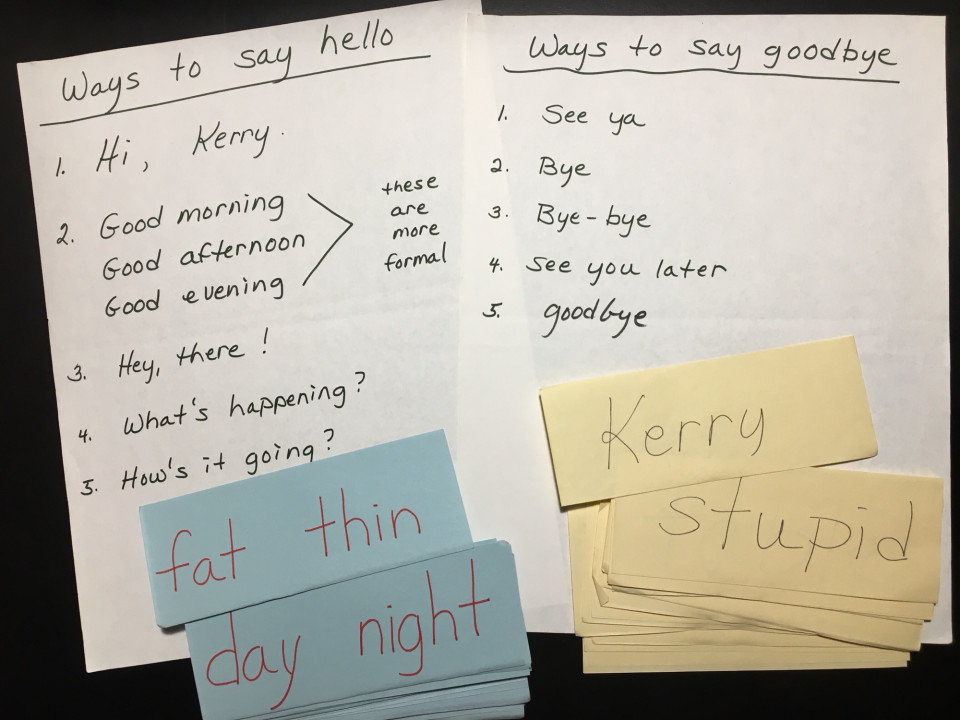 Ways to say hello
1. Hi, Kerry.
2. Good morning
Good afternoon
Good evening
these
are
more
formal
3. Hey, there!
4. What's happening?
5. How's it going?
Ways to say goodbye
1. See ya
2. Bye
3. Bye-bye
4. see you later
5. goodbye
fat thin
day night
Kerry
stupid